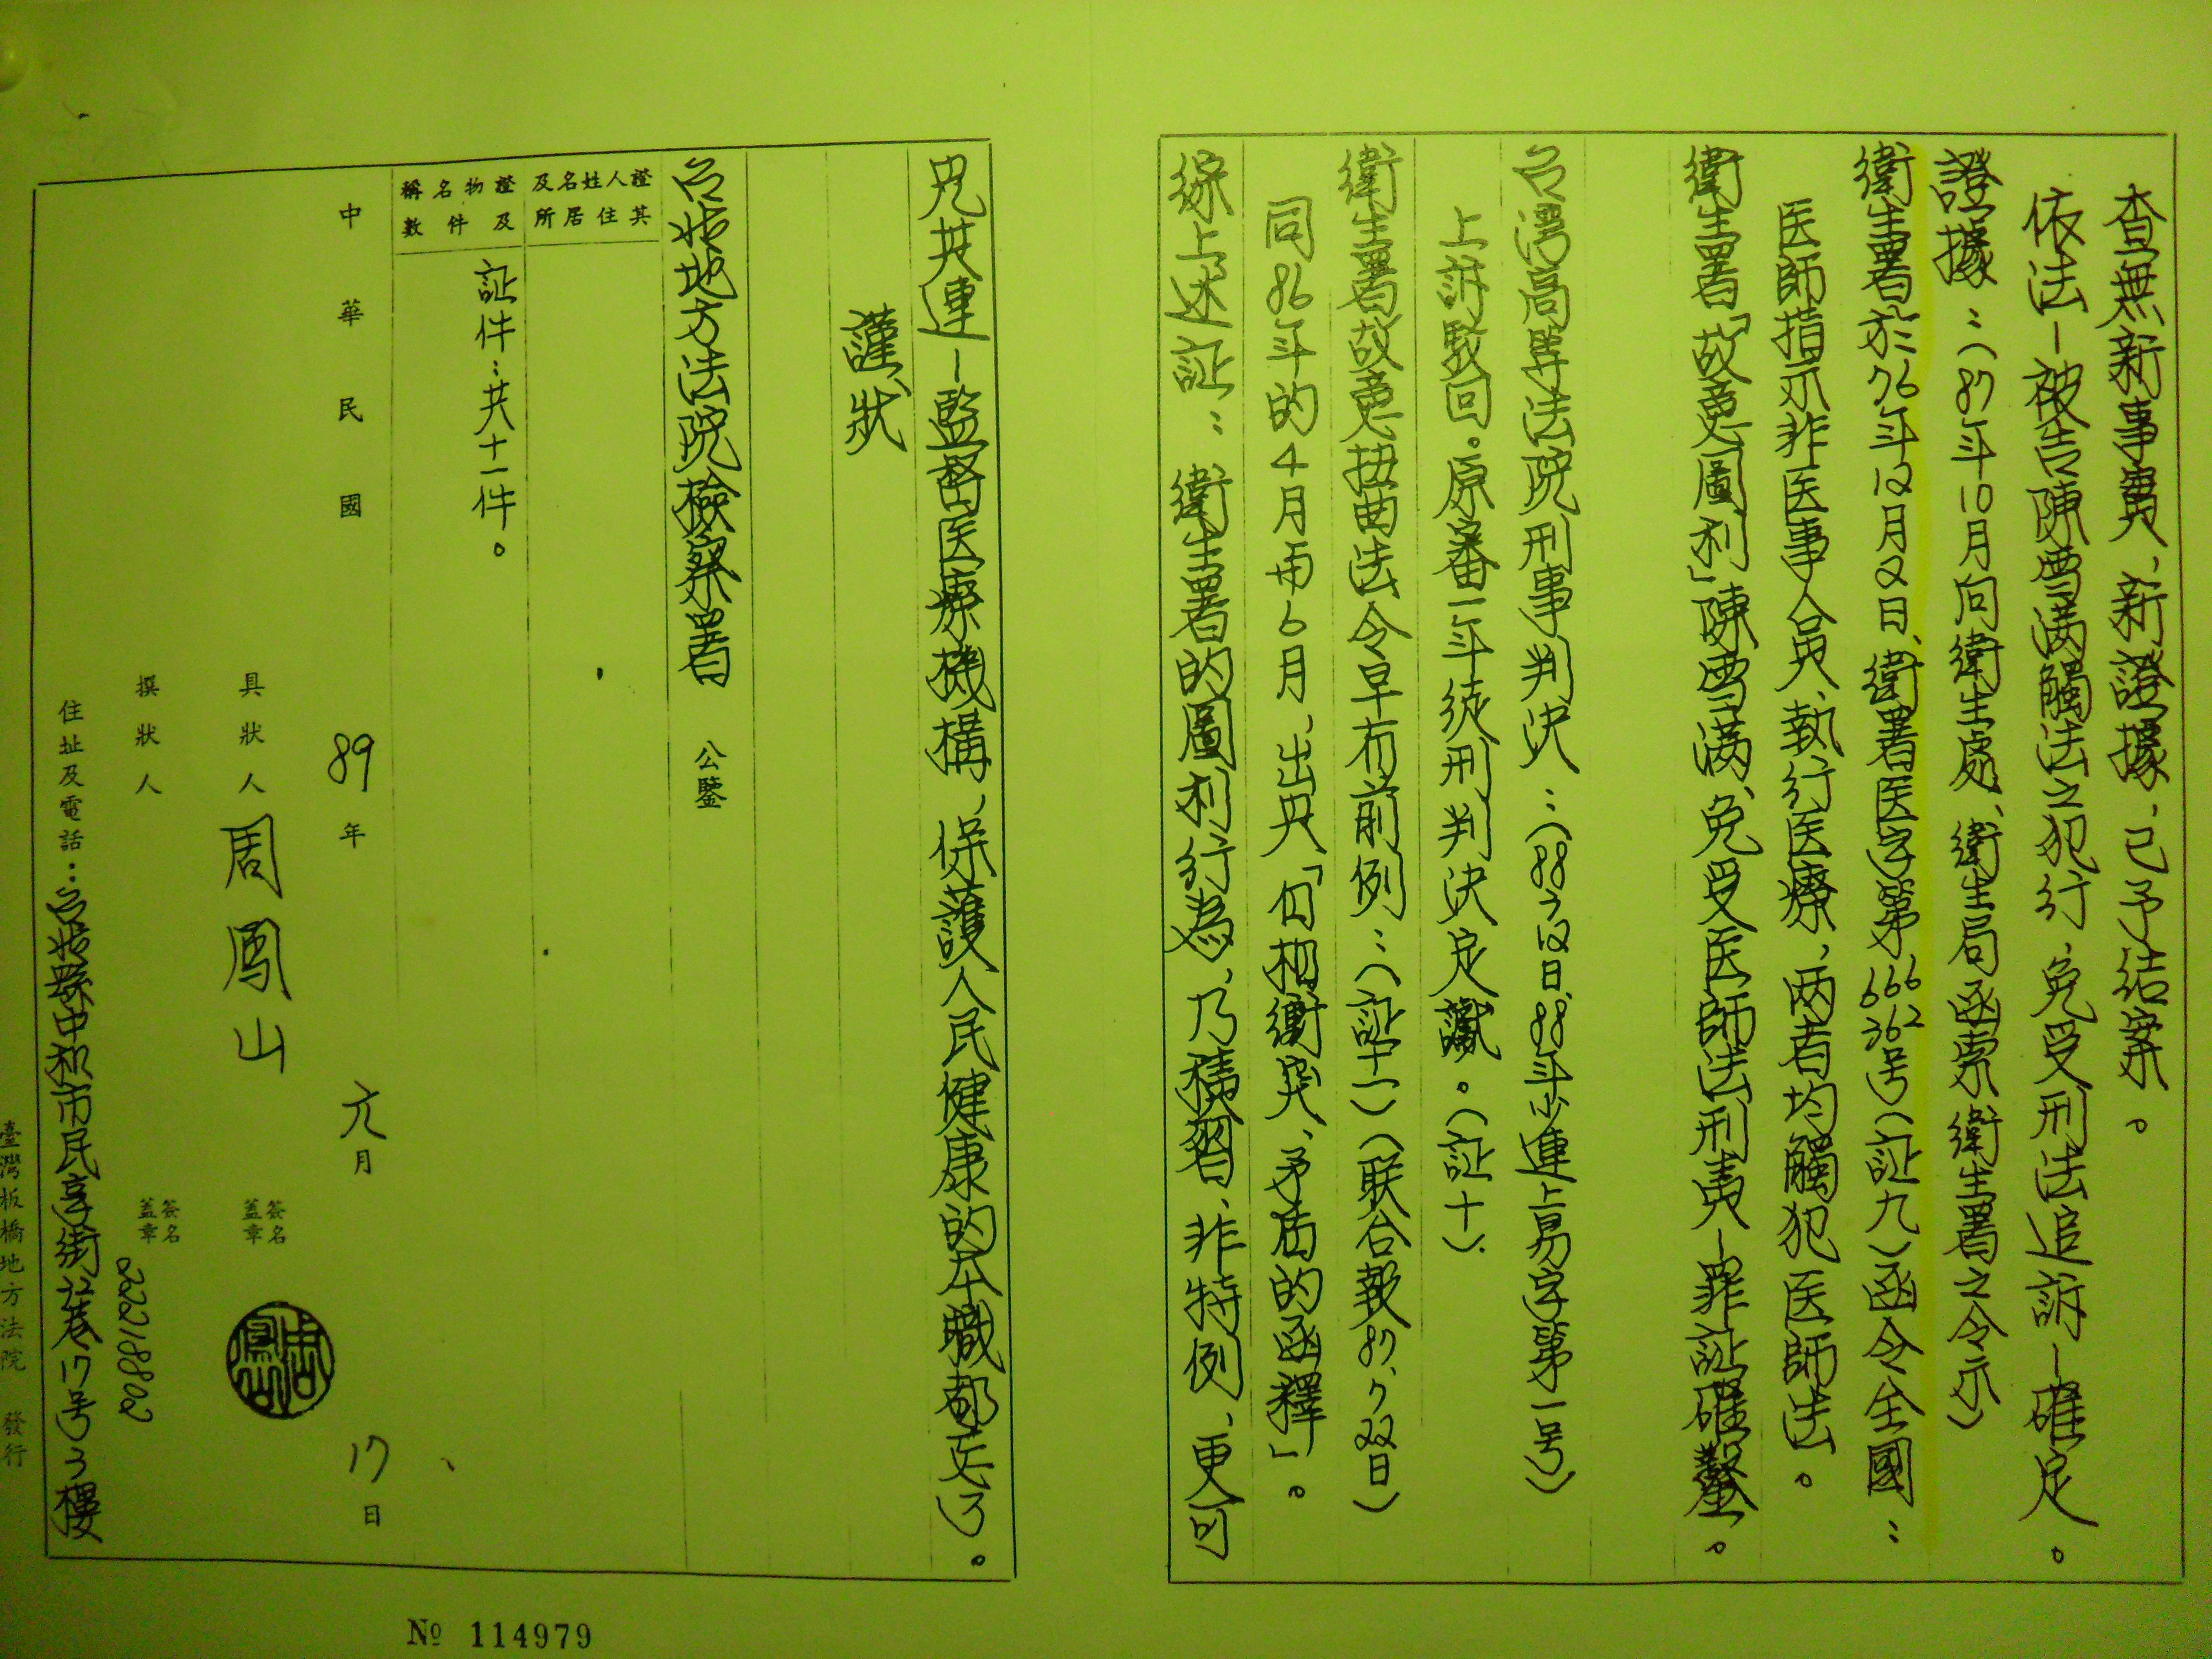 查無新事實、新證據，已予結案。
依法－被告陳雪滿觸法之犯行，免受刑法追訴－確定。
證據：：（87年10月向衛生處、衛生局函索衛生署之令示）
衛生署於76年12月2日、衛署医字第666362号（証九）函令全國：：
医師指示非医事人員、執行医療，两者均觸犯医師法。
衛生署「故意圖利」陳雪滿、免受医師法刑責－罪証確鑿。
台灣高等法院刑事判決：：（88、7、12日、88年少連上易字第一号）
上訴駁回。原審一年徒刑判決定讞。（証十）.
衛生署故意扭曲法令早有前例：：（証十一）（联合報87、7、22日）
同86年的4月再6月，出具「自相衝突、矛盾的函釋」。
綜上述証：：衛生署的圖利行為，乃積習、非特例，更可
見其連－監督医療機構，保護人民健康的本職都忘了。
謹狀
台北地方法院檢察署 公鑒
證人姓名及其住居所
證物名稱及件數
証件：共十一件。
中華民國 89 年 元月 17 日
具狀人 周鳳山 簽名蓋章
撰狀人 簽名蓋章
22218802
住址及電話：台北縣中和市民享街32巷17号3樓
臺灣板橋地方法院 發行
№ 114979